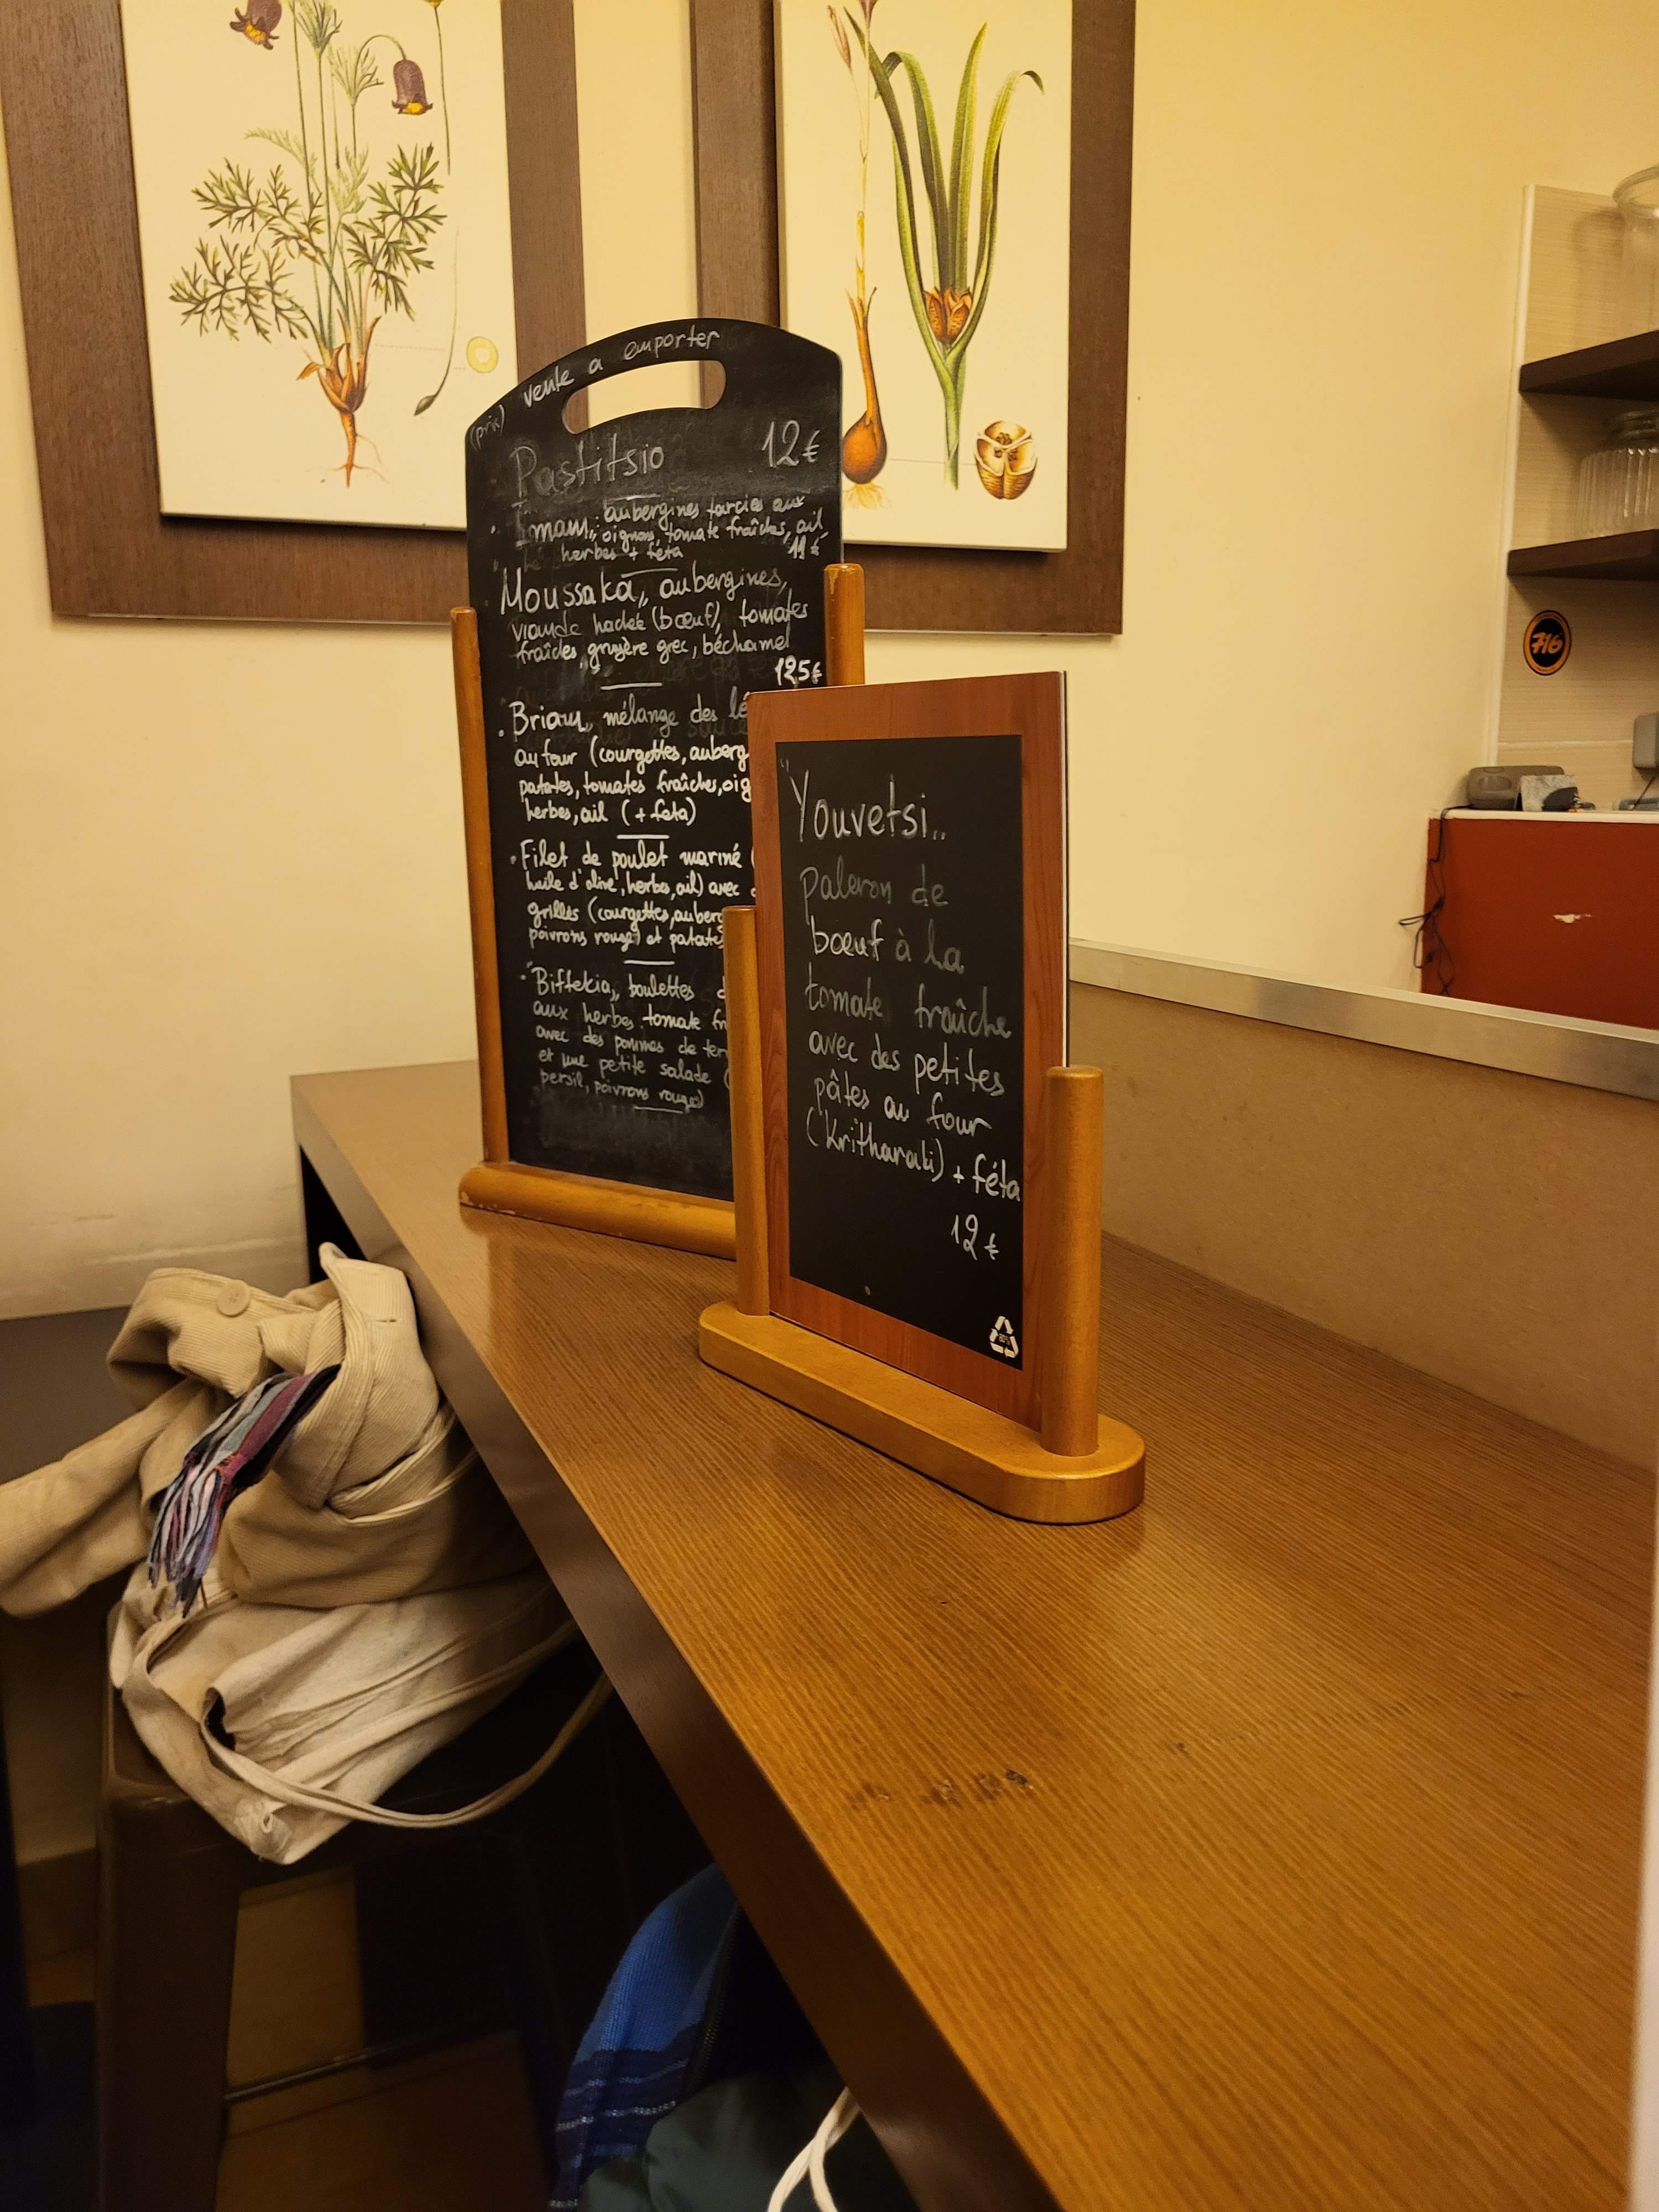 (prix) vente a emporter
Pastitsio 12€
Imam,, aubergines farcies aux
oignons, tomate fraîches, ail
herbes + féta 11€
Moussaka,, aubergines,
viande hachée (bœuf), tomates
fraîches, gruyère grec, béchamel
12,5€
Briam,, mélange des lé
au four (courgettes, auberg
patates, tomates fraîches, oig
herbes, ail (+ feta)
Filet de poulet mariné (
huile d'olive, herbes, ail) avec
grillés (courgettes, auberg
poivrons rouge) et patates
"Biftekia,, boulettes d
aux herbes, tomate fr
avec des pommes de ter
et une petite salade (
persil, poivrons rouge)
"Youvetsi,,
paleron de
bœuf à la
tomate fraîche
avec des petites
pâtes au four
(Kritharaki) + féta
12€
716